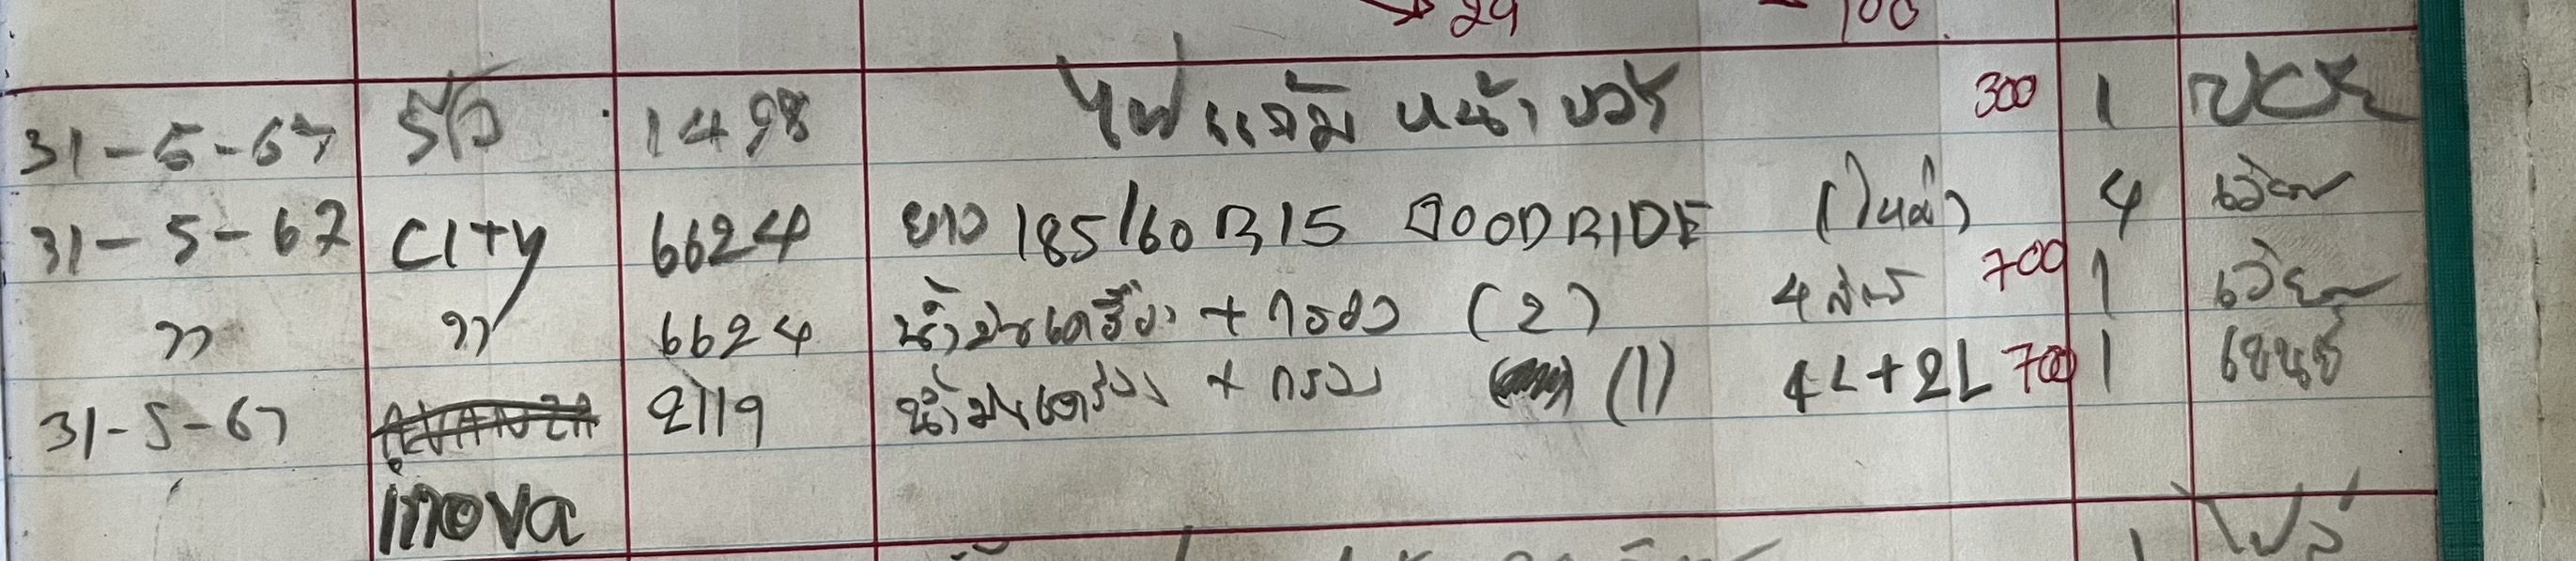 29 100
31-5-67 รีโว 1498 ไฟแจ้ม หน้า ขวา 300 1
31-5-67 City 6624 ยาง 185/60 R15 GOODRIDE (ใหม่) 4 เวียน
" " 6624 น้ำมันเครื่อง + กรอง (2) 4 ลิตร 700 1 เวียน
31-5-67 2119 น้ำมันเครื่อง + กรอง (1) 4L+2L 700 1
inova